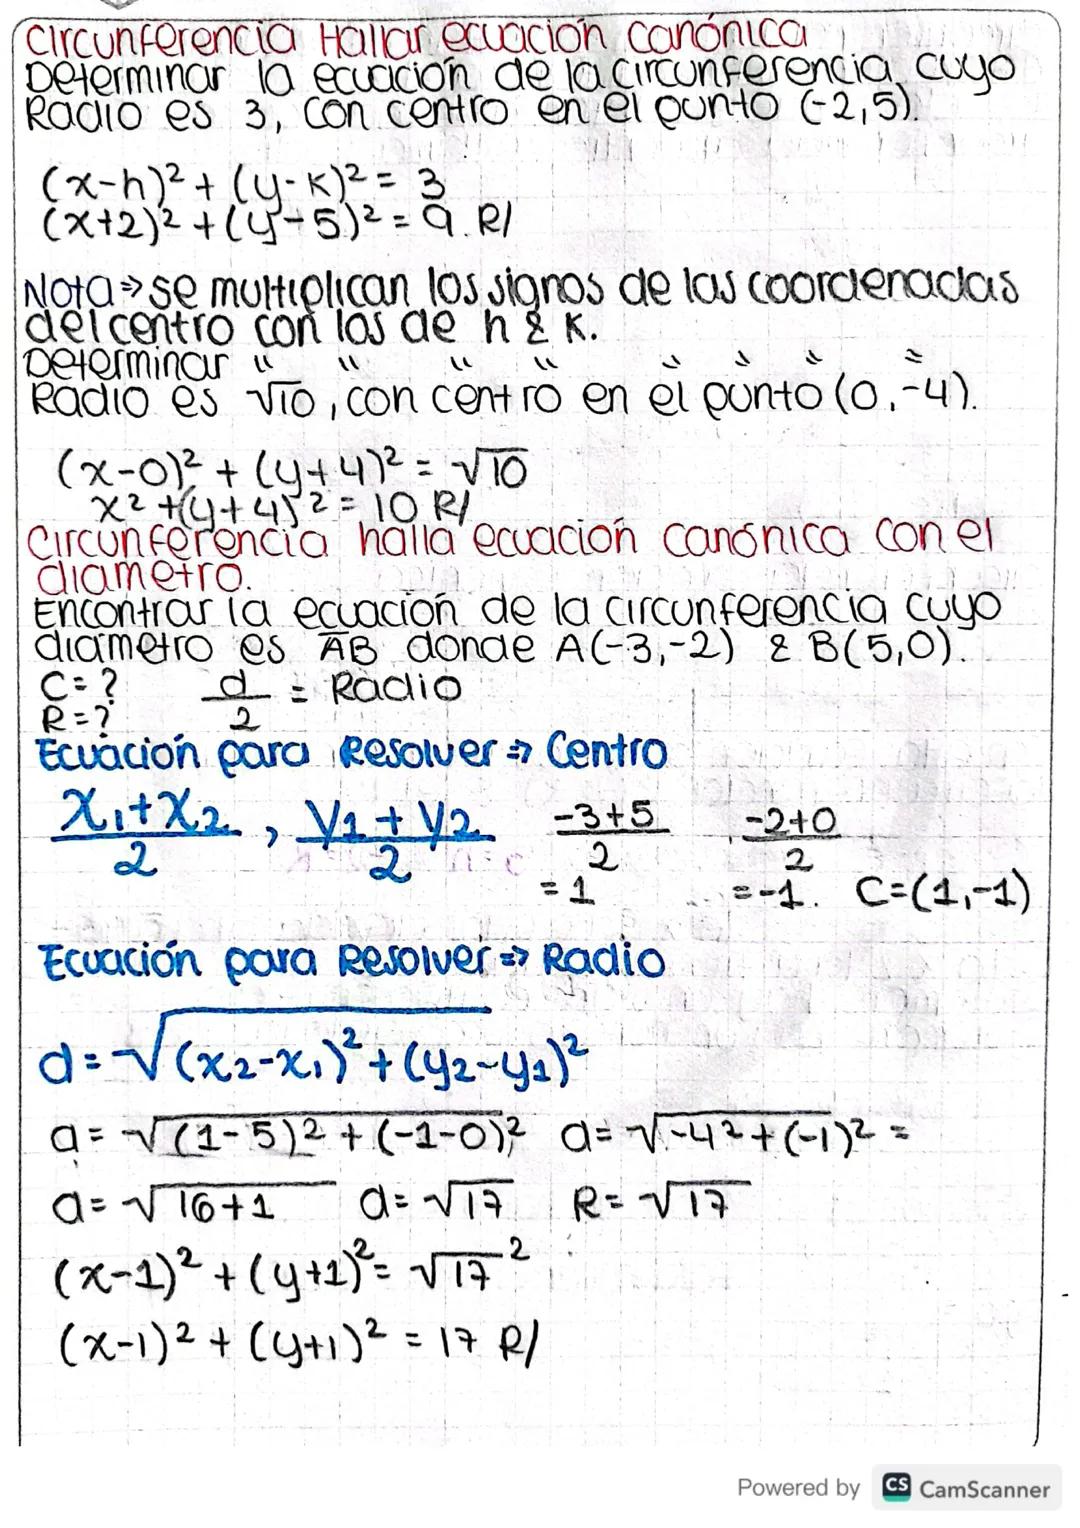 Circunferencia Hallar ecuación canónica
Determinar la ecuación de la circunferencia cuyo
Radio es 3, con centro en el punto (-2,5).
(x-h)² + (y-k)² = 3
(x+2)² + (y-5)² = 9. R/
Nota⇒ se multiplican los signos de las coordenadas
del centro con los de h & k.
Determinar " " " " " " " "
Radio es √10, con centro en el punto (0,-4).
(x-0)² + (y+4)² = √10
x² + (y+4)² = 10 R/
Circunferencia halla ecuación canónica con el
diametro.
Encontrar la ecuación de la circunferencia cuyo
diámetro es A̅B̅ donde A(-3,-2) & B(5,0).
C=? d/2 = Radio
R=?
Ecuación para Resolver ⇒ Centro
x₁+x₂/2 , y₁+y₂/2 -3+5/2 -2+0/2
= 1 = -1. C=(1,-1)
Ecuación para Resolver ⇒ Radio
d=√(x₂-x₁)²+(y₂-y₁)²
d=√(1-5)²+(-1-0)² d=√-4²+(-1)² =
d=√16+1 d=√17 R=√17
(x-1)² + (y+1)² = √17²
(x-1)² + (y+1)² = 17 R/
Powered by CS CamScanner